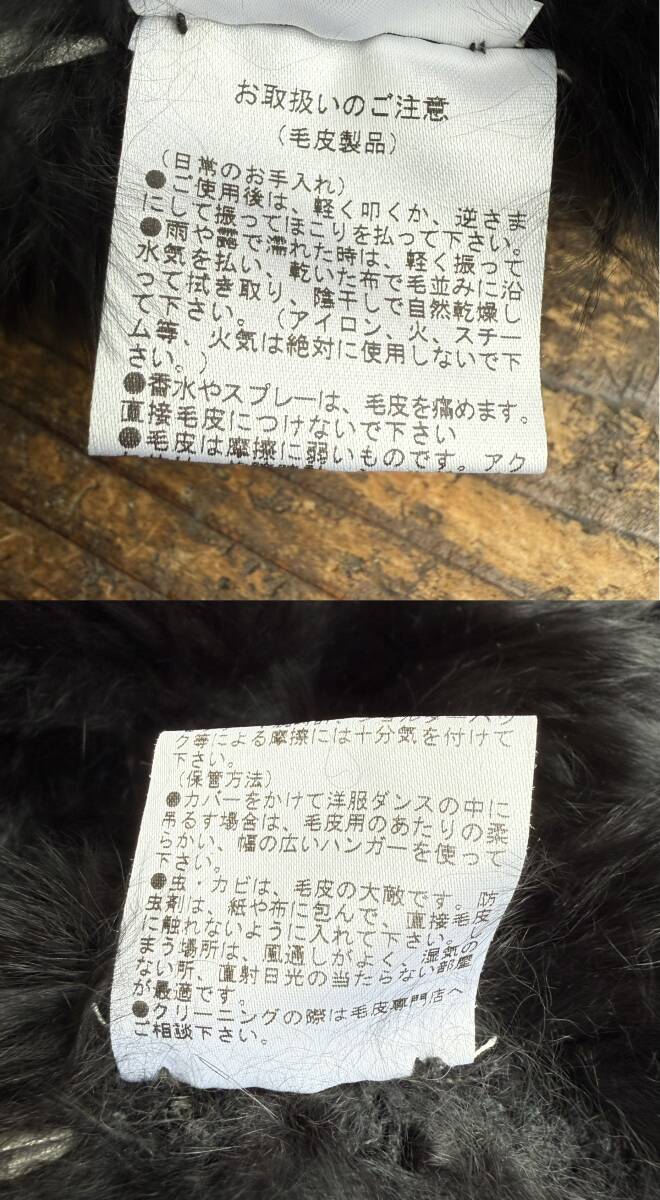 お取扱いのご注意
（毛皮製品）
（日常のお手入れ）
●ご使用後は、軽く叩くか、逆さま
にして振ってほこりを払って下さい。
●雨や露で濡れた時は、軽く振って
水気を払い、乾いた布で毛並みに沿
って拭き取り、陰干しで自然乾燥し
て下さい。（アイロン、火、スチー
ム等、火気は絶対に使用しないで下
さい。）
●香水やスプレーは、毛皮を痛めます。
直接毛皮につけないで下さい
●毛皮は摩擦に弱いものです。アク
ク等による摩擦には十分気を付けて
下さい。
（保管方法）
●カバーをかけて洋服ダンスの中に
吊るす場合は、毛皮用のあたりの柔
らかい、幅の広いハンガーを使って
下さい。
●虫・カビは、毛皮の大敵です。防
虫剤は、紙や布に包んで、直接毛皮
に触れないように入れて下さい。し
まう場所は、風通しがよく、湿気の
ない所、直射日光の当たらない部屋
が最適です。
●クリーニングの際は毛皮専門店へ
ご相談下さい。